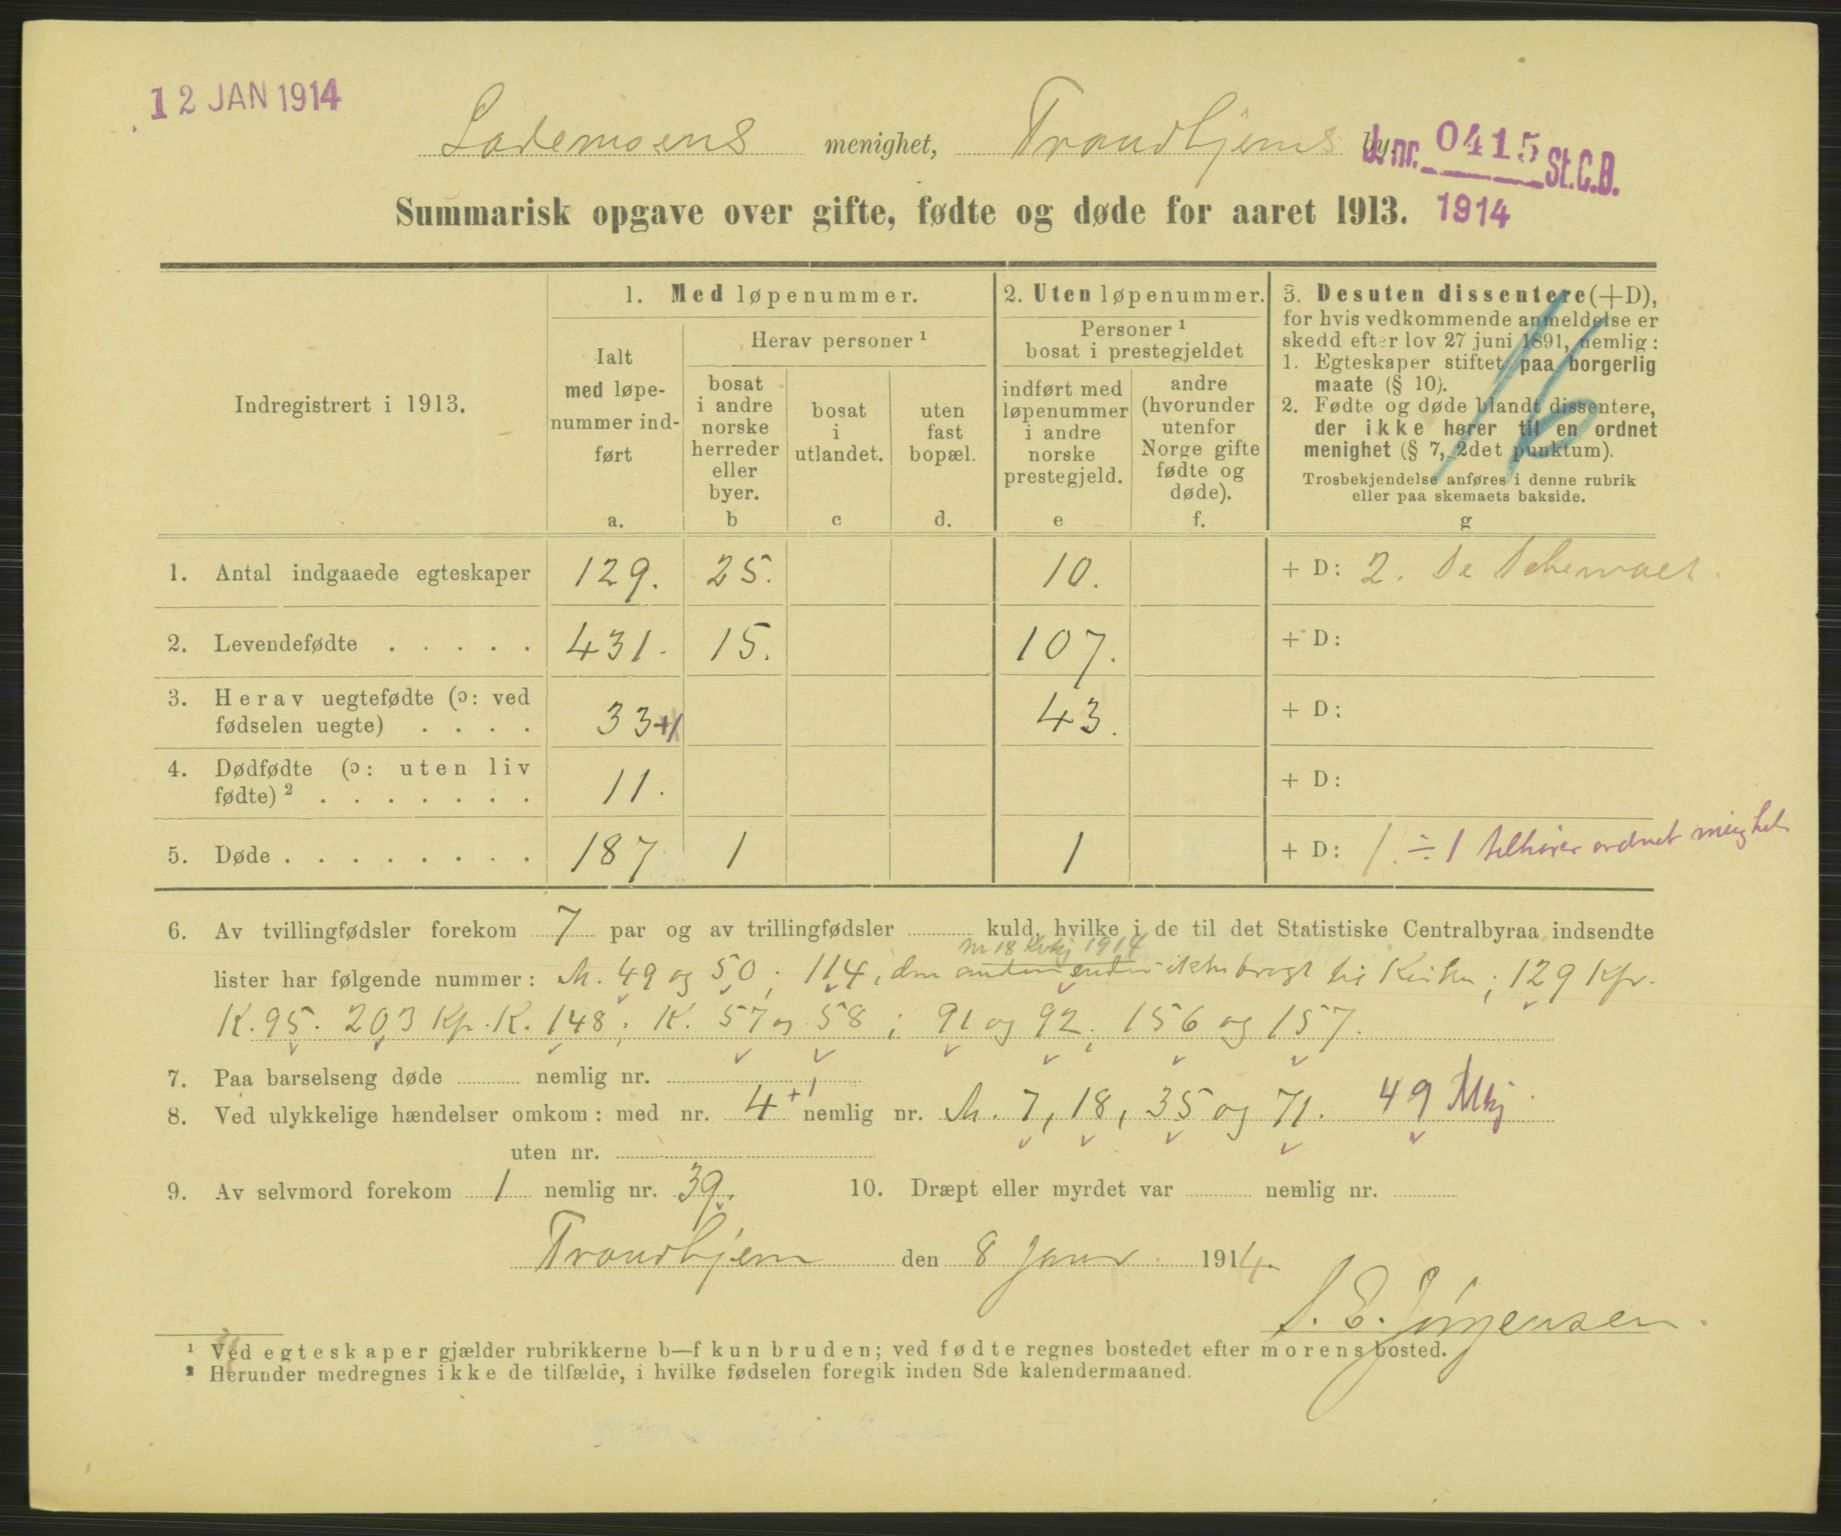 12 JAN 1914
Lademoens menighet, Trondhjems by.
J. nr. 0415 St.C.B.
1914
Summarisk opgave over gifte, fødte og døde for aaret 1913.
Indregistrert i 1913.
1. Med løpenummer.
Ialt med løpe-nummer ind-ført
a.
Herav personer ¹
bosat i andre norske herreder eller byer.
b
bosat i utlandet.
c
uten fast bopæl.
d.
2. Uten løpenummer.
Personer ¹ bosat i prestegjeldet
indført med løpenummer i andre norske prestegjeld.
e
andre (hvorunder utenfor Norge gifte fødte og døde).
f.
3. Desuten dissentere (+D),
for hvis vedkommende anmeldelse er
skedd efter lov 27 juni 1891, nemlig:
1. Egteskaper stiftet paa borgerlig
maate (§ 10).
2. Fødte og døde blandt dissentere,
der ikke hører til en ordnet
menighet (§ 7, 2det punktum).
Trosbekjendelse anføres i denne rubrik
eller paa skemaets bakside.
g
1. Antal indgaaede egteskaper 129. 25. 10. + D: 2.
2. Levendefødte . . . . . 431. 15. 107. + D:
3. Herav uegtefødte (ɔ: ved
fødselen uegte) . . . . 33+1 43. + D:
4. Dødfødte (ɔ: uten liv
fødte) ² . . . . . . . 11. + D:
5. Døde . . . . . . . . 187 1 1 + D: 1. ÷ 1 tilhører ordnet menighet
6. Av tvillingfødsler forekom 7 par og av trillingfødsler kuld, hvilke i de til det Statistiske Centralbyraa indsendte
nr 18 Kvkj 1914
lister har følgende nummer: M. 49 og 50; 114, den anden ikke bragt til Kirken; 129 Kpr.
K. 95. 203 Kp. K. 148; K. 57 og 58; 91 og 92; 156 og 157.
7. Paa barselseng døde nemlig nr.
8. Ved ulykkelige hændelser omkom: med nr. 4 +1 nemlig nr. M. 7, 18, 35 og 71. 49 Mkj
uten nr.
9. Av selvmord forekom 1 nemlig nr. 39. 10. Dræpt eller myrdet var nemlig nr.
Trondhjem den 8 Janr. 1914.
S. E. Jørgensen.
¹ Ved egteskaper gjælder rubrikkerne b—f kun bruden; ved fødte regnes bostedet efter morens bosted.
² Herunder medregnes ikke de tilfælde, i hvilke fødselen foregik inden 8de kalendermaaned.